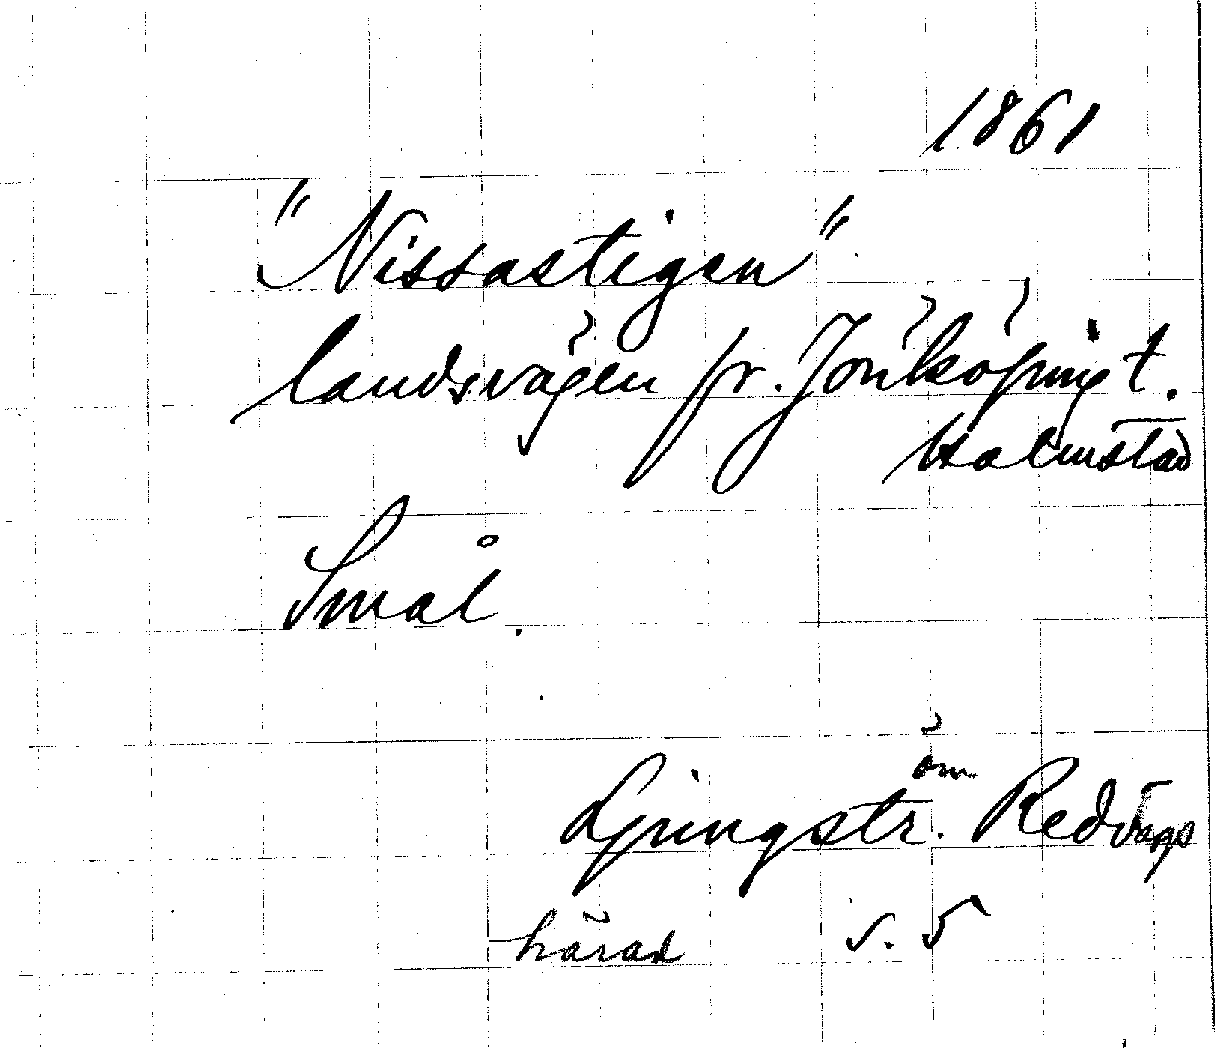 1861
"Nissastigen"
landsvägen fr. Jönköping t.
Halmstad
Smål.
om
Ljungstr. Redvägs
härad s. 5